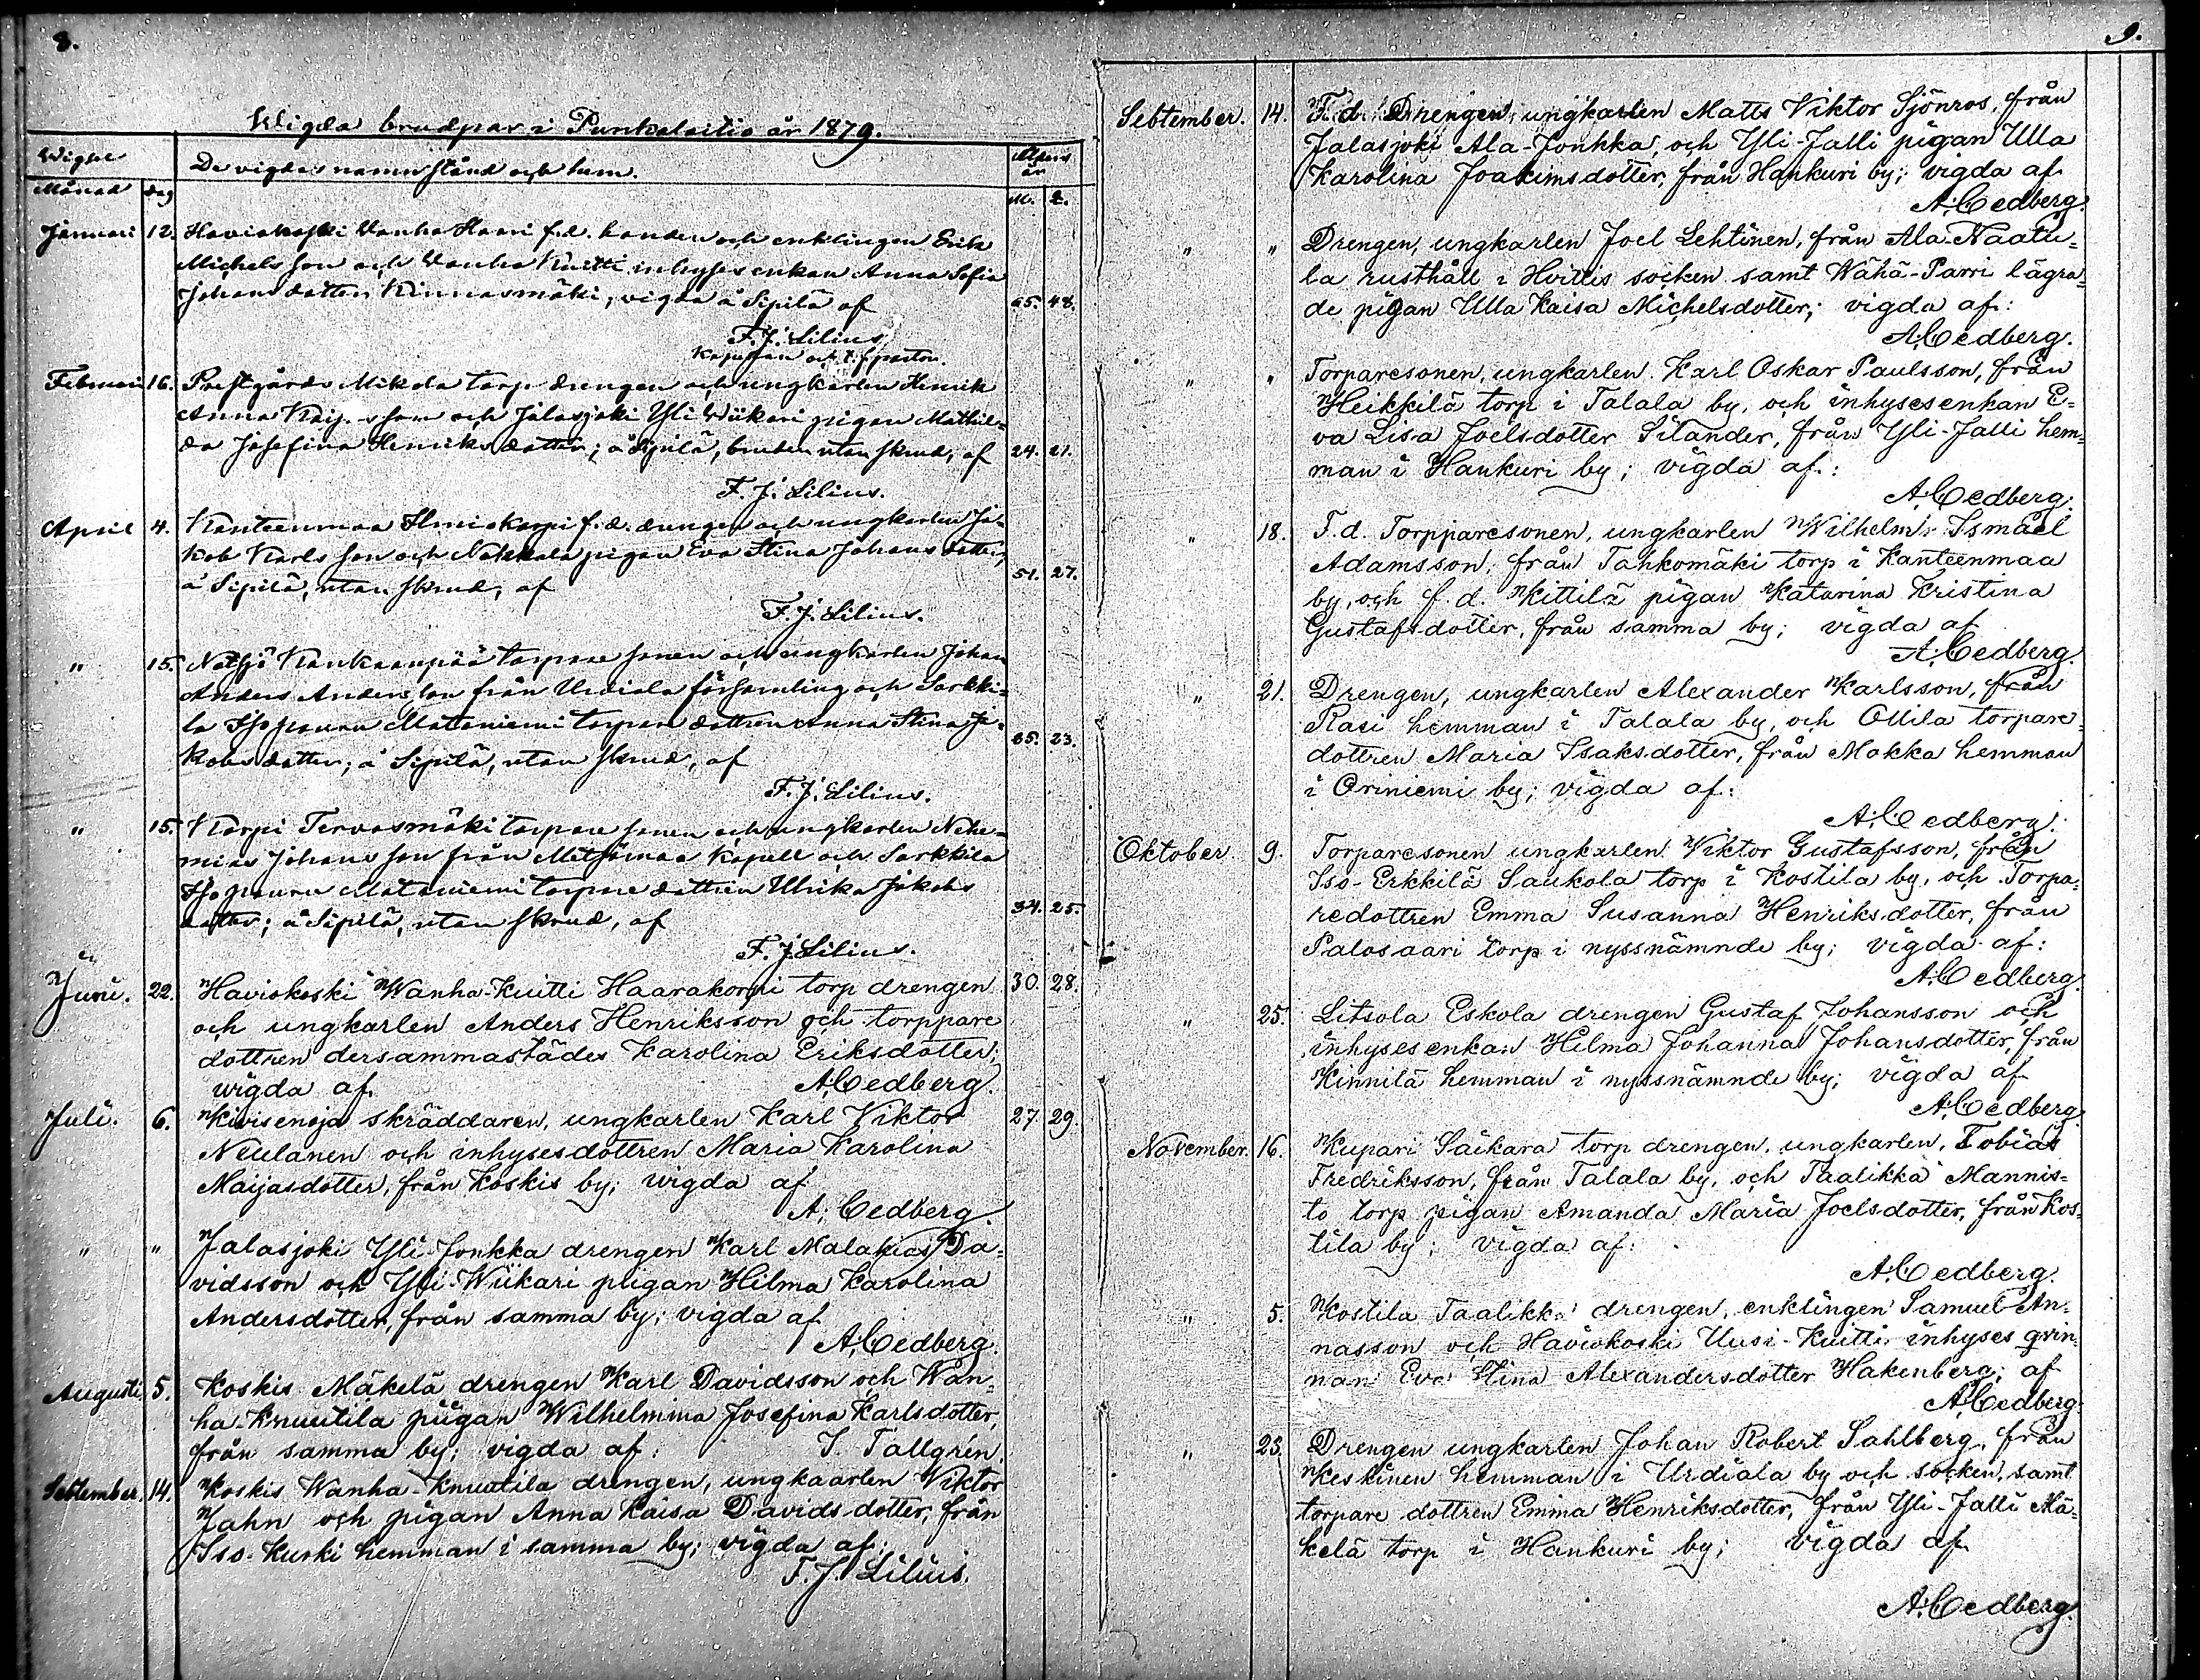 8.
Wigda brudpar i Punkalaitio år 1879.
Wigsel
Månad
Dag
De vigdas namn stånd och hem.
Ålder
år
M. Q.
Januari 12. Haviokoski Wanha Knari f.d. bonden och enklingen Erik
Michelsson och Wanha Kuitti inhyses enkan Anna Sofia
Johansdotter Kinnasmäki, vigda å Sipilä af 65. 48.
F. J. Lilius
Kapellan och t.f. pastor.
Februari 16. Prestgårds Mikola torp drengen och ungkarlen Henrik
Anna Kaij.sson och Jalasjoki Yli Wiikari pigan Mathil-
da Josefina Henriksdotter; å Sipilä, bruden utan skrud, af 24. 21.
F. J. Lilius.
April 4. Kanteenmaa Ilmiokorpi f.d. drengen och ungkarlen Ja-
kob Karlsson och Nakkala pigan Eva Stina Johansdotter,
å Sipilä, utan skrud, af 51. 27.
F. J. Lilius.
" 15. Kankaanpää torpare sonen och ungkarlen Johan
Anders Andersson från Urdiala församling och Sarkki-
la Iso pauru Mataniemi torpare dottren Anna Stina Ja-
kobsdotter; å Sipilä, utan skrud, af 35. 23.
F. J. Lilius.
" 15. Korpi Tervasmäki torpare sonen och ungkarlen Nehe-
mias Johansson från Metsämaa Kapell och Sarkkila
Iso pauru Mataniemi torpare dottren Ulrika Jakobs
dotter; å Sipilä, utan skrud, af 34. 25.
F. J. Lilius.
Juni. 22. Haviokoski Wanha-Kuitti Haarakorpi torp drengen 30. 28.
och ungkarlen Anders Henriksson och torppare
dottren dersammastädes Karolina Eriksdotter;
wigda af. A. Cedberg.
Juli. 6. Kivisenoja skräddaren, ungkarlen Karl Viktor 27. 29.
Neulanen och inhysesdottren Maria Karolina
Maijasdotter, från Koskis by; wigda af
A. Cedberg.
" " Jalasjoki Yli-Jonkka drengen Karl Malakias Da-
vidsson och Yli-Wiikari piigan Hilma Karolina
Andersdotter, från samma by; vigda af
A. Cedberg.
Augusti. 5. Koskis Mäkelä drengen Karl Davidsson och Wan-
ha-Knuutila piigan Wilhelmina Josefina Karlsdotter,
från samma by; vigda af: I. Tallgrén.
September. 14. Koskis Wanha-Knuutila drengen, ungkaarlen Viktor
Jahn och pigan Anna Kaisa Davidsdotter, från
Iso-Kurki hemman i samma by; vigda af:
F. J. Lilius.
9.
Sebtember. 14. F. d. Drengen, ungkarlen Matts Viktor Sjönros, från
Jalasjoki Ala-Jonkka, och Yli-Jalli pigan Ulla
Karolina Joakimsdotter, från Hankuri by; vigda af
A. Cedberg.
" " Drengen, ungkarlen Joel Lehtinen, från Ala-Naatu-
la rusthåll i Hvittis socken samt Wähä-Parri lägra-
de pigan Ulla Kaisa Michelsdotter; vigda af:
A. Cedberg.
" " Torparesonen, ungkarlen Karl Oskar Paulsson, från
Heikkilä torp i Talala by, och inhysesenkan E-
va Lisa Joelsdotter Silander, från Yli-Jalli hem-
man i Hankuri by; vigda af:
A. Cedberg.
" 18. F. d. Torpparesonen, ungkarlen Wilhelm Ismael
Adamsson, från Tahkomäki torp i Kanteenmaa
by, och f. d. Kittilä pigan Katarina Kristina
Gustafsdotter, från samma by; vigda af
A. Cedberg.
" 21. Drengen, ungkarlen Alexander Karlsson, från
Rasi hemman i Talala by, och Ollila torpare-
dottren Maria Isaksdotter, från Mokka hemman
i Oriniemi by; vigda af:
A. Cedberg.
Oktober. 9. Torparesonen ungkarlen Viktor Gustafsson, från
Iso-Erkkilä Saukola torp i Kostila by, och Torpa-
redottren Emma Susanna Henriksdotter, från
Palosaari torp i nyssnämnde by; vigda af:
A. Cedberg.
" 25. Liitsola Eskola drengen Gustaf Johansson och
inhysesenkan Hilma Johanna Johansdotter, från
Kinnilä hemman i nyssnämnde by; vigda af
A. Cedberg.
November. 16. Kupari Saikara torp drengen, ungkarlen, Tobias
Fredriksson, från Talala by, och Taalikka Mannis-
to torp pigan Amanda Maria Joelsdotter, från Kos-
tila by; vigda af:
A. Cedberg.
" 5. Kostila Taalikka drengen, enklingen Samuel An-
nasson och Haviokoski Uusi-Kuitti inhyses qvin-
nan Eva Stina Alexandersdotter Hakenberg; af
A. Cedberg.
" 23. Drengen ungkarlen Johan Robert Sahlberg, från
Keskinen hemman i Urdiala by och socken, samt
torpare dottren Emma Henriksdotter, från Yli-Jalli Mä-
kelä torp i Hankuri by; vigda af
A. Cedberg.